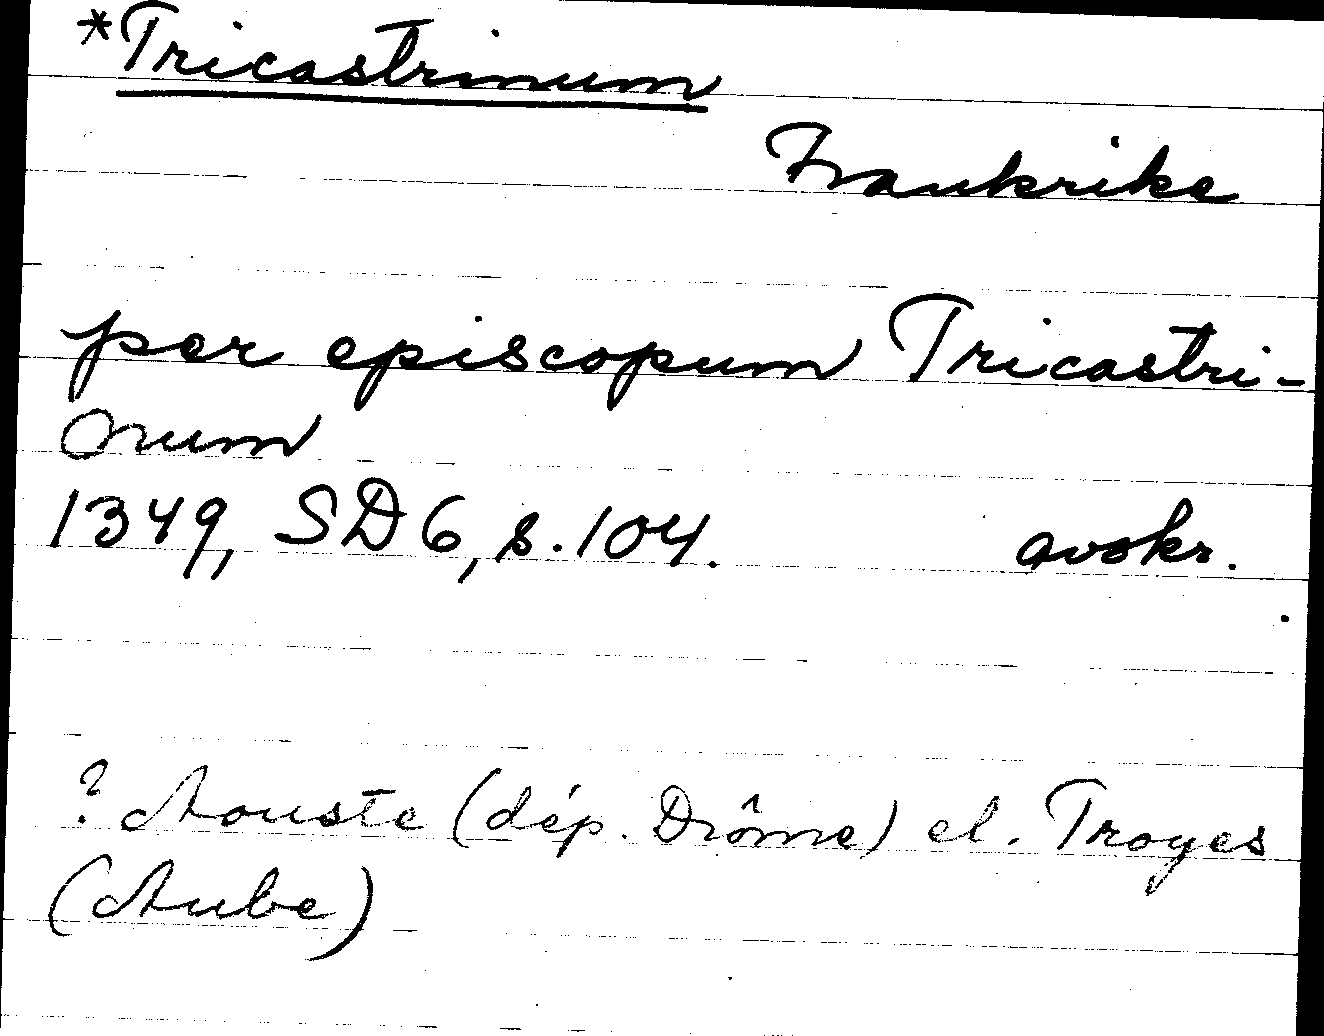 *Tricastrinum
Frankrike
per episcopum Tricastri-
orum
1349, SD 6, s. 104. avskr.
? Aouste (dép. Drôme) el. Troyes
(Aube)